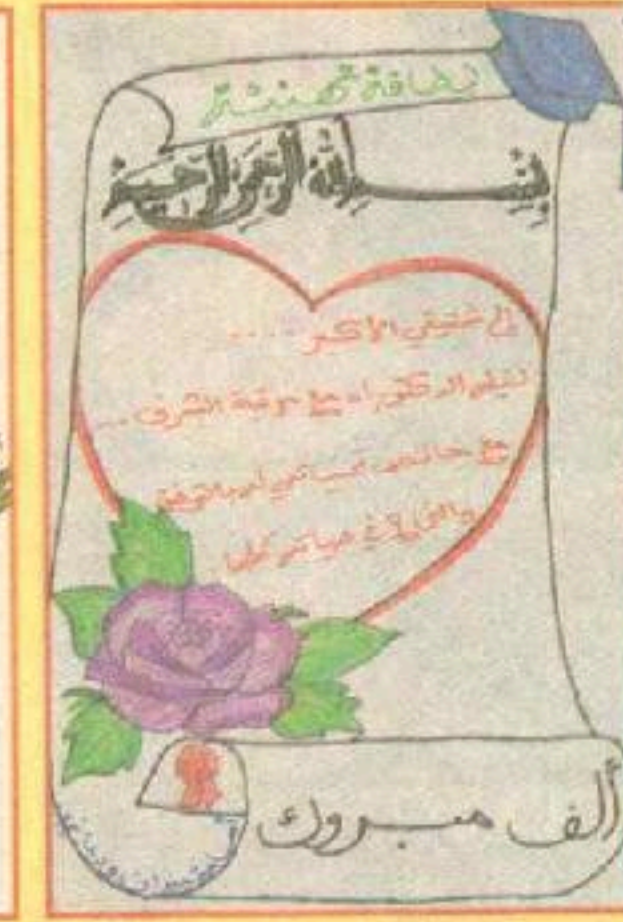 بطاقة تهنئة
بسم الله الرحمن الرحيم
إلى شقيقي الأكبر ....
لنيله الدكتوراه مع مرتبة الشرف ...
مع خالص تمنياتي له بالتوفيق
والنجاح في حياته
ألف مبروك